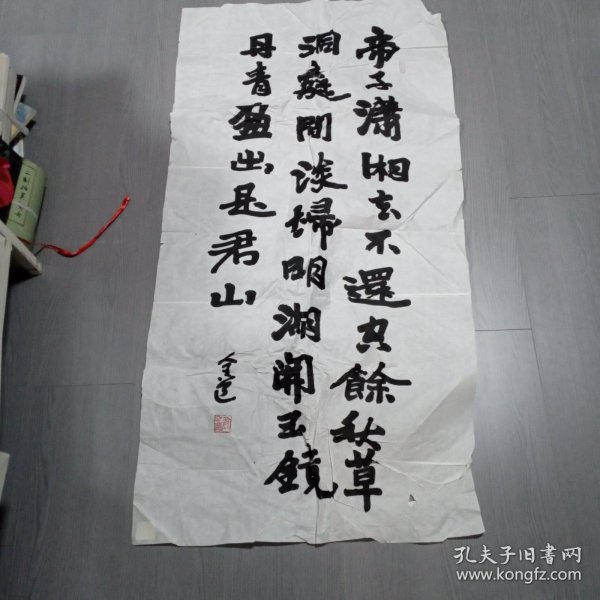 帝子潇湘去不還空餘秋草
洞庭間淡掃明湖開玉鏡
丹青畫出是君山
金道
孔夫子旧書网
www.kongfz.com